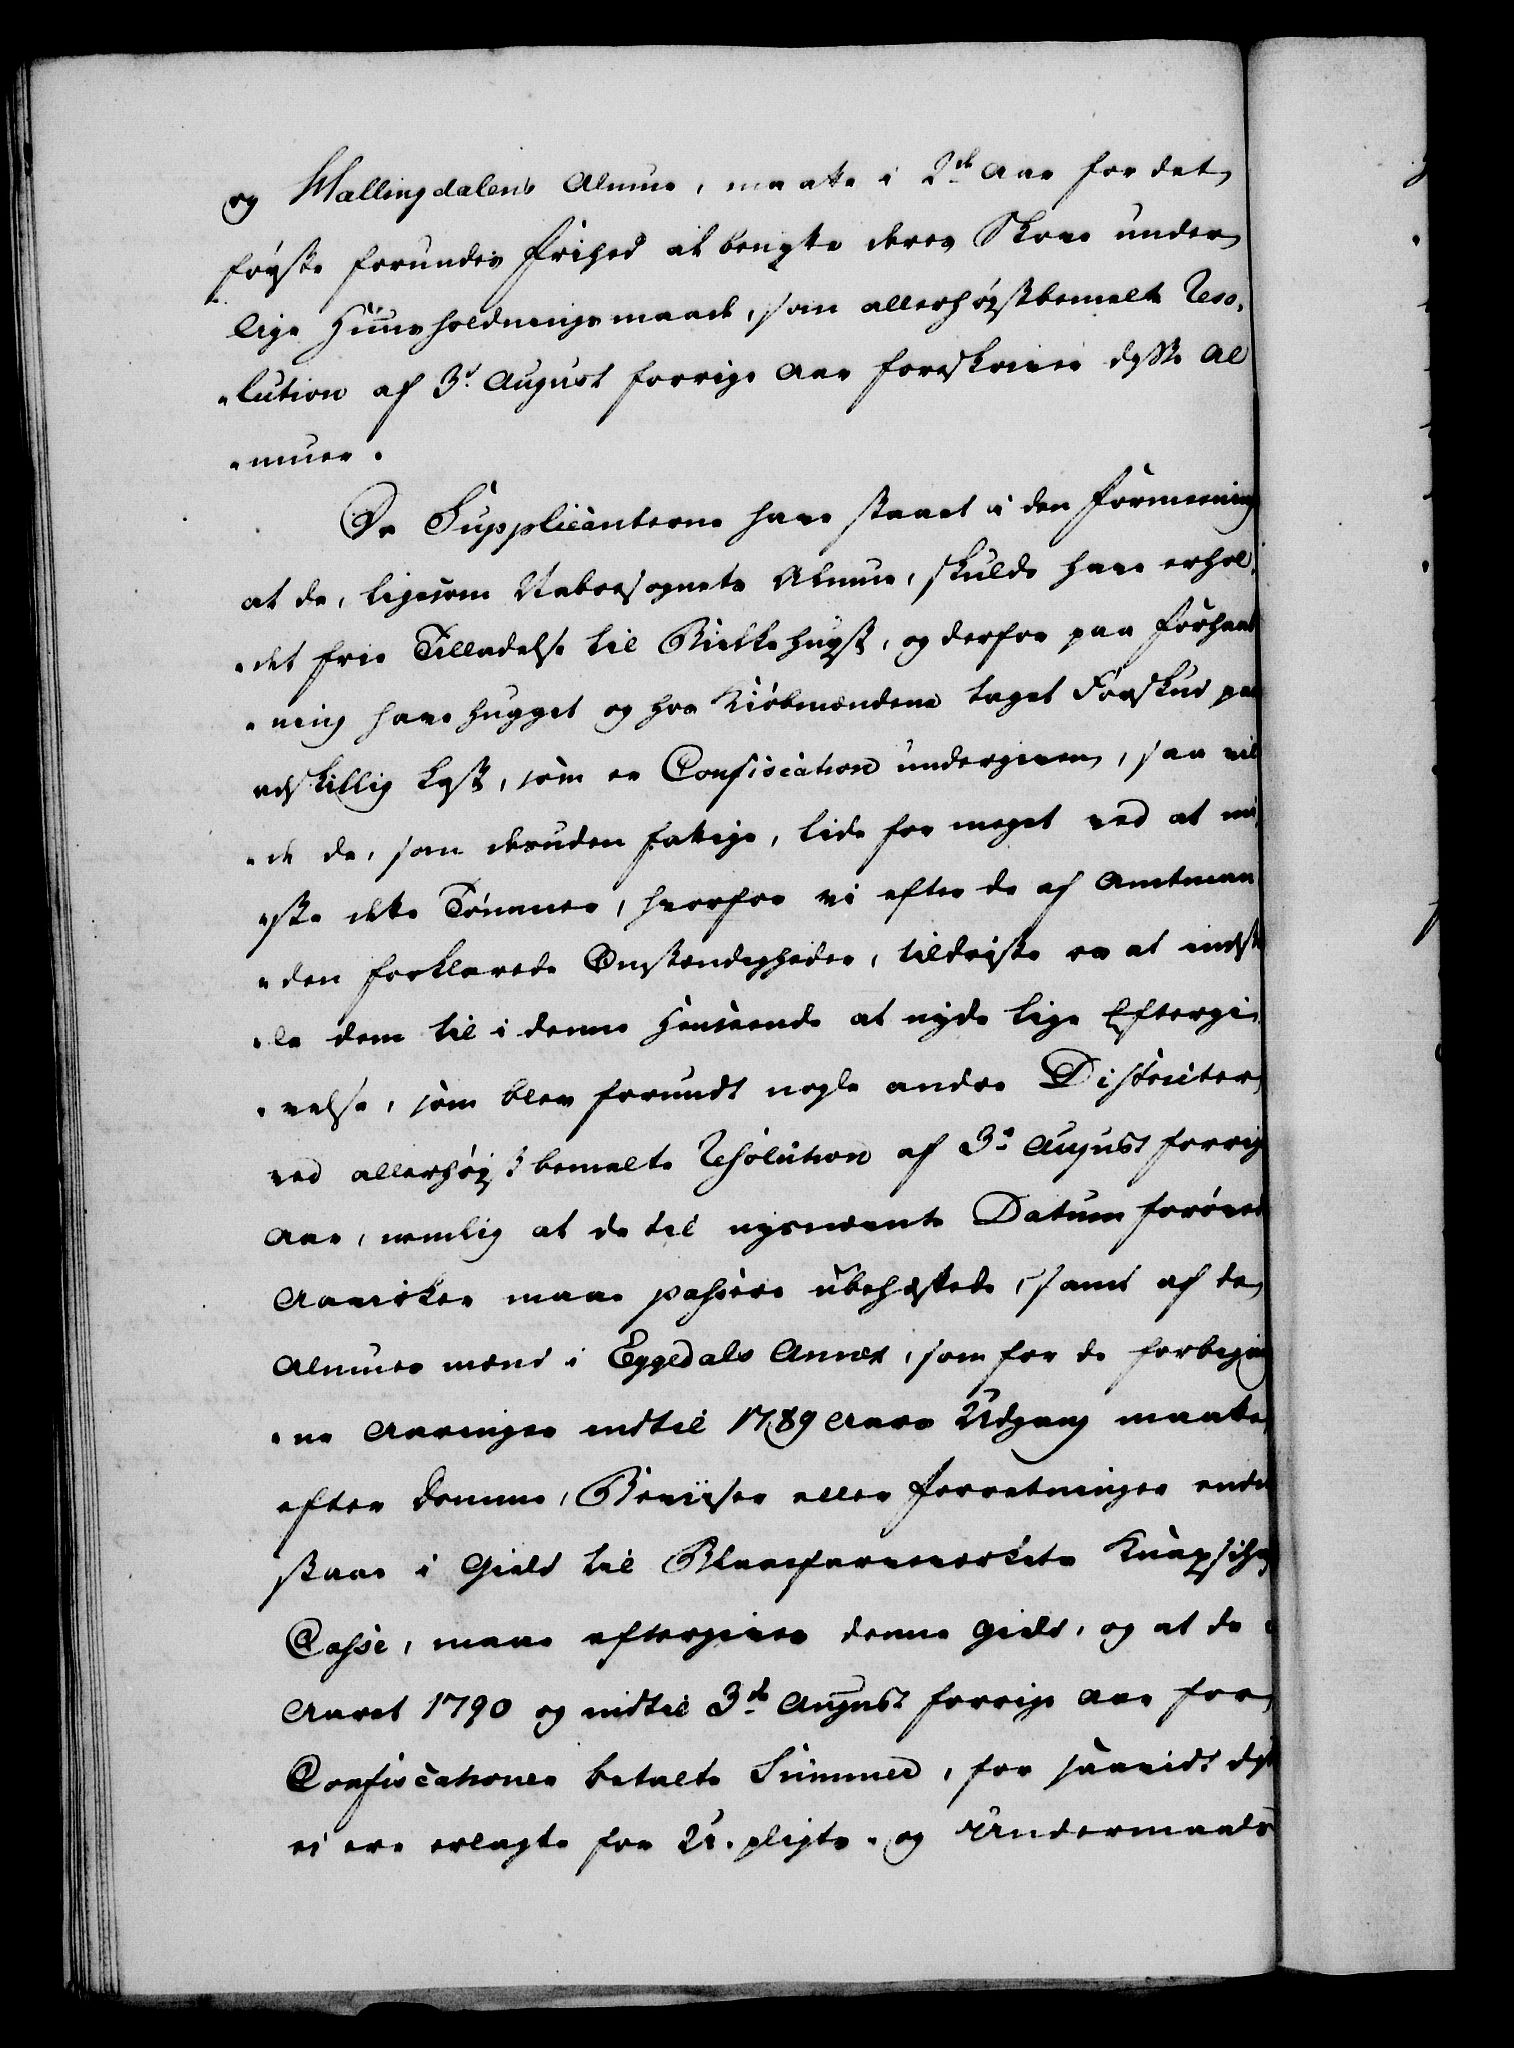 og Hallingdalens Almue, maatte i 2de Aar for det
første forundes Frihed at benytte deres Skove under
lige Huusholdningsmaade, som allerhøistbemelte Reso-
-lution af 3de August forrige Aar foreskriver disse Al
-muer.
Da Supplicanterne have staaet i den Formeening
at de, ligesom Nabosognets Almue, skulde have erhol-
-det frie Tilladelse til Bielkehugst, og derfor paa Forhaand
-ning have hugget og hos Kiøbmændene taget Forskud paa
adskillig Last, som er Confiscation undergiven, saa vil
-de de, som desuden fattige, lide for meget ved at mi
-ste dette Tømmer, hvorfor vi efter de af Amtman
-den forklarede Omstændigheder, tildriste os at indstil
-le dem til i denne Henseende at nyde lige Eftergi-
-velse, som blev forundt nogle andre Districter
ved allerhøistbemelte Resolution af 3de August forrige
Aar, nemlig at de til nysnævnte Datum forøvede
Aavirker maae passere ubehæftede, samt at de
Almues mænd i Eggedals Annex, som for de forbigang
-ne Aaringer indtil 1789 Aars Udgang maatte
efter Domme, Beviiser eller Forretninger endnu
staae i Gield til Blaafarveværkets Knapschafts
Casse, maae eftergives denne Gield, og at de i
Aaret 1790 og indtil 3de August forrige Aar for
Confiscationer betalte Summer, for saavidt disse
ei ere erlagte for U-pligts- og Undermaals